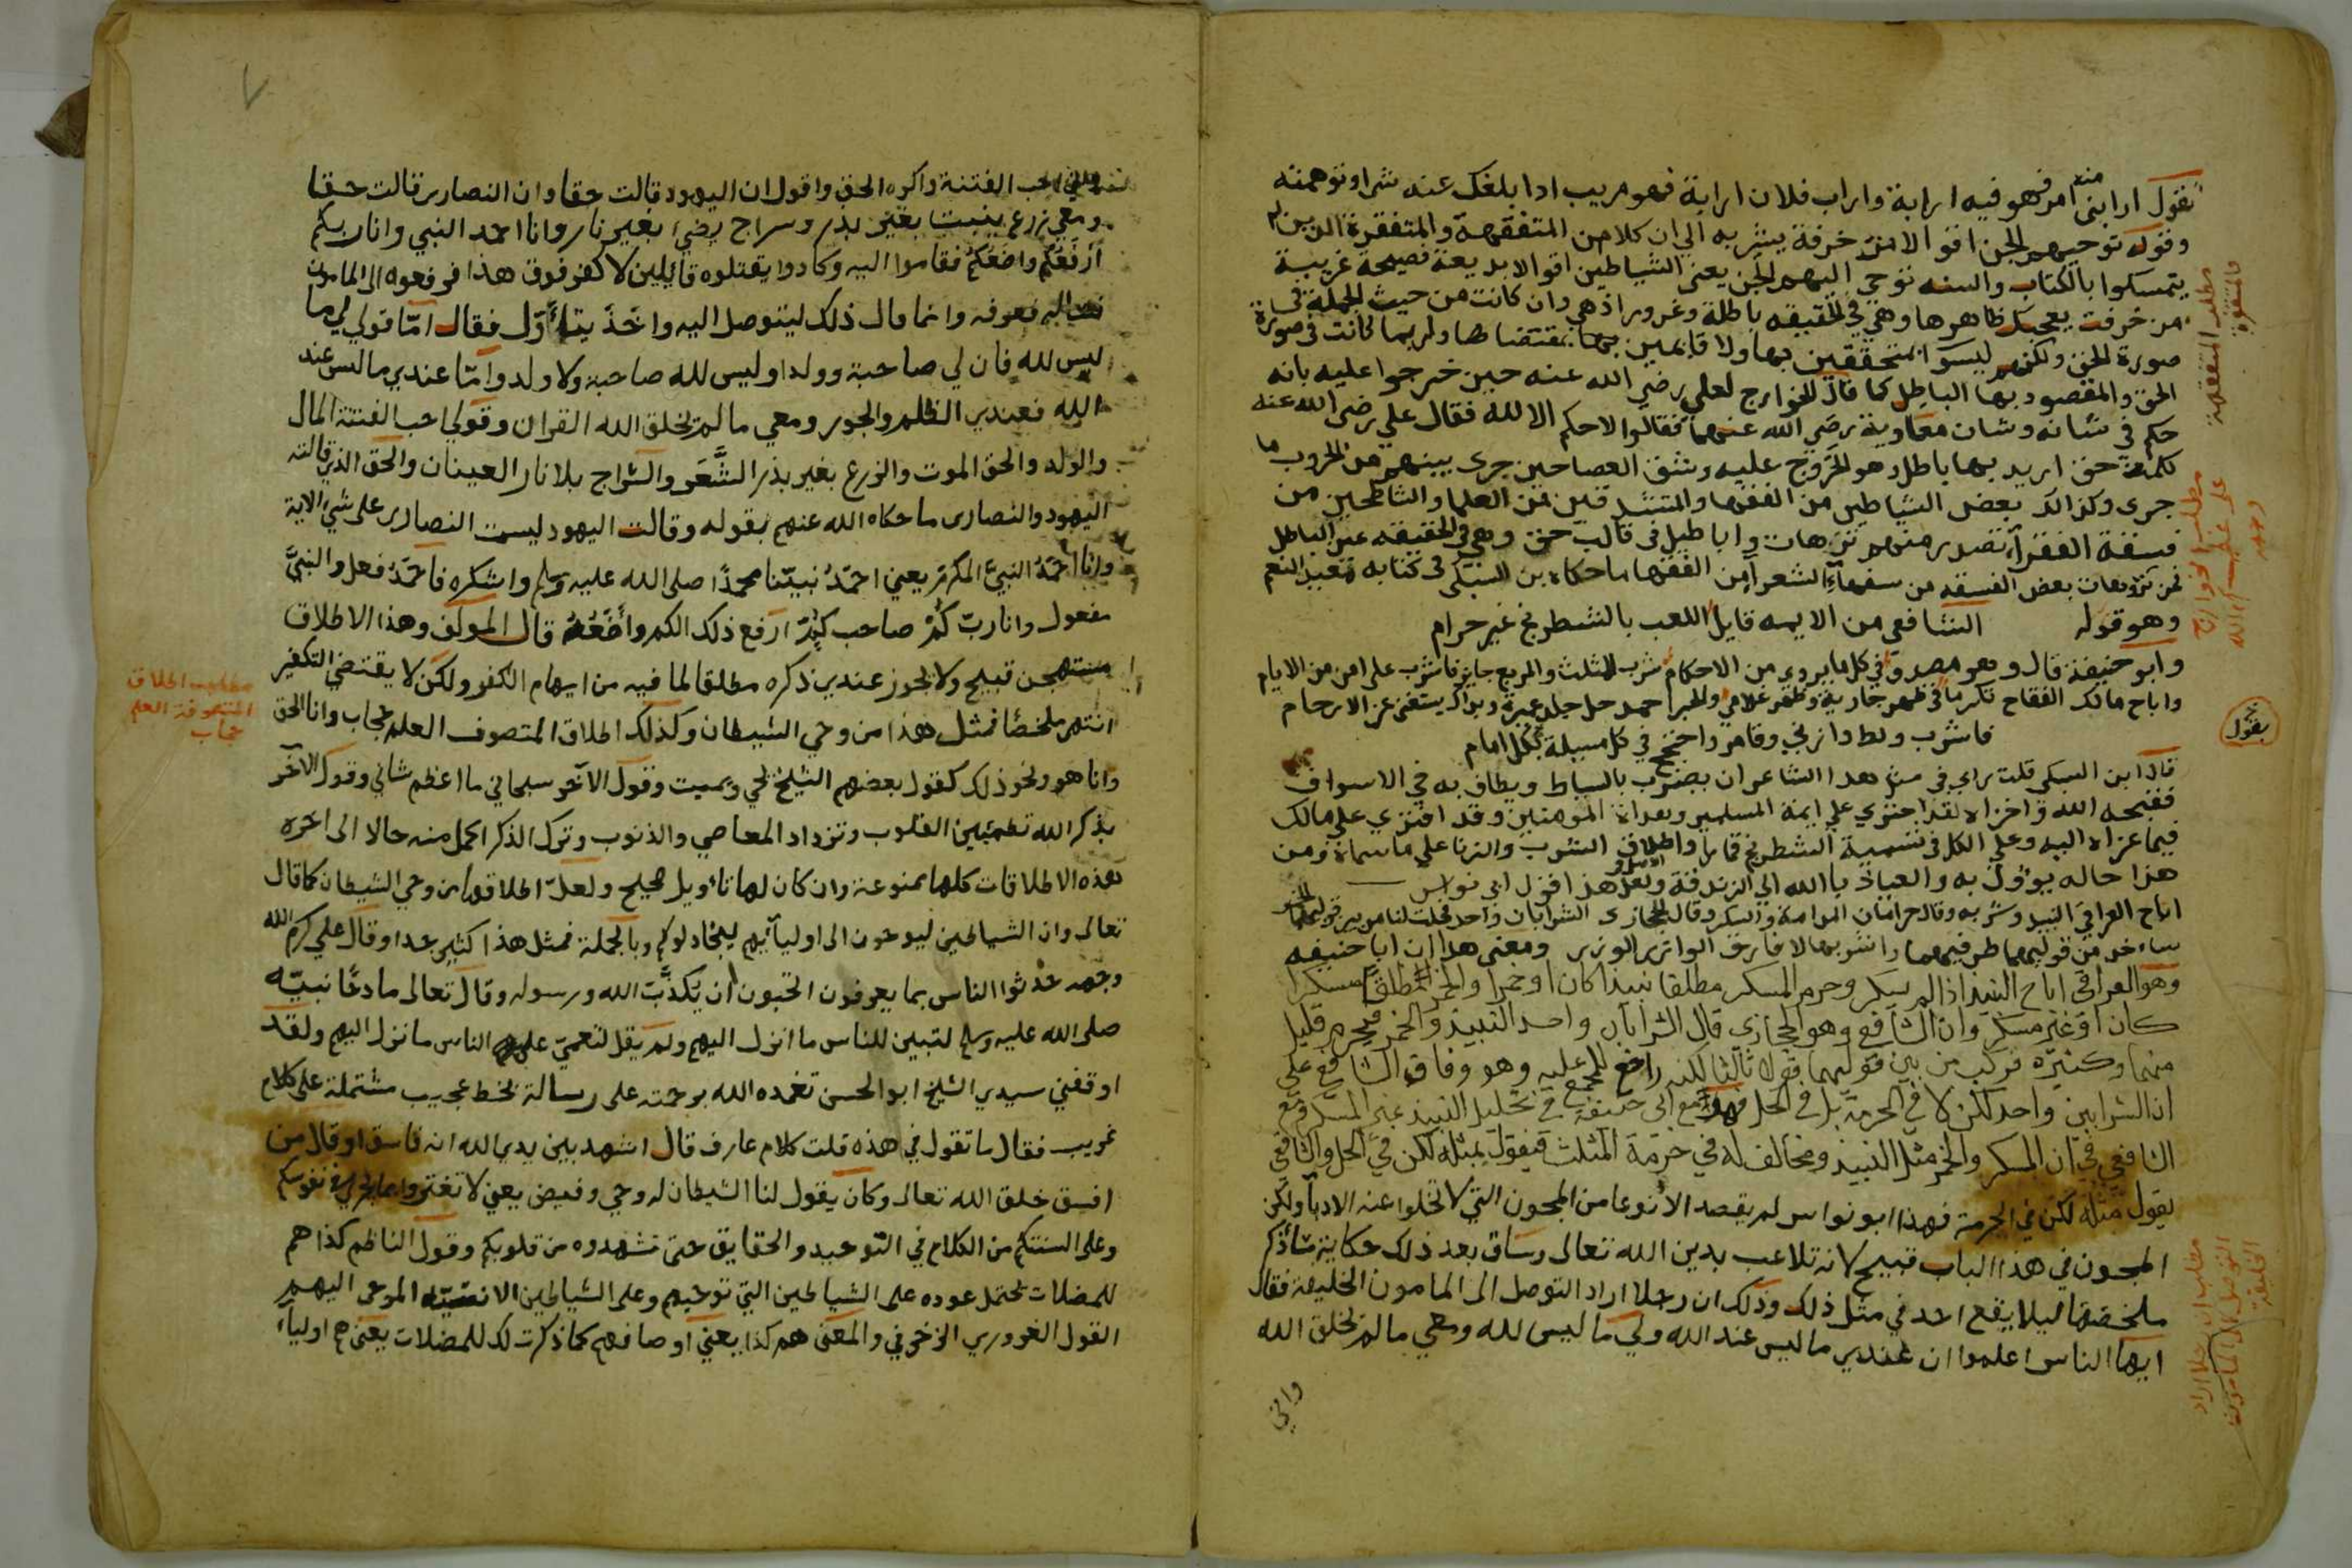 تقول ارابنى منه امر فهو فيه ارابة واراب فلان ارابة فهو مريب اذا بلغك عنه شرا وتوهمته
وقوله توحيهم الجن اقوالا مزخرفة يشير به الى ان كلا من المتفقهة والمتفقرة الذين لم
يتمسكوا بالكتاب والسنه توحى اليهم الجن يعنى الشياطين اقوالا بديعة فصيحة غريبة
مزخرفت يعجبك ظاهرها وهي في الحقيقه باطلة وغرور اذ هي وان كانت من حيث الجملة في
صورة الحق ولكنهم ليسوا بمتحققين بها ولا قايمين بمقتضاها ولربما كانت في صورة
الحق والمقصود بها الباطل كما قال الخوارج لعلي رضي الله عنه حين خرجوا عليه بانه
حكم في شانه وشان معاوية رضي الله عنهما فقالوا لا حكم الا لله فقال علي رضى الله عنه
كلمة حق اريد بها باطل وهو الخروج عليه وشق العصا حين جرى بينهم من الحروب ما
جرى وكذلك بعض الشياطين من الفقها والمتشدقين من العلما والشاطحين من
فسقة الفقرآ تصدر منهم ترهات واباطيل في قالب حق وهي في الحقيقه عين الباطل
فمن ترهات بعض الفسقه من سفهآء الشعرآ من الفقها ما حكاه بن السبكى في كتابه معيد النعم
وهو قوله الشافعى من الايمه قايل اللعب بالشطرنج غير حرام
وابو حنيفة قال وهو مصدق في كل ما يروى من الاحكام شرب المثلث والمربع جايز فاشرب على امن من الايام
واباح مالك الفقاح تكرما في ظهر جارية وظهر غلام والحبر احمد حل جلد عميرة وبذاك يستغنى عن الارحام
فاشرب ولط وازني وقامر واحتجج في كل مسيلة بكل امام
قال ابن السبكى قلت رايي في مثل هذا الشاعر ان يضرب بالسياط ويطاف به في الاسواق
فقبحه الله واخزاه لقد اجترى على ايمة المسلمين وهداة المومنين وقد افترى على مالك
فيما عزاه اليه وعلى الكل في تسمية الشطرنج قمارا واطلاق الشرب والزنا على ما سماه ومن
هذا حاله يوول به والعياذ بالله الى الزندقة ولعل هذا قول ابى نواس
اباح العراقي النبيذ وشربه وقال حرامان المدامة والسكر وقال الحجازي الشرابان واحد فحلت لنا من بين قوليهما الخمر
ساخذ من قوليهما طرفيهما واشربها لا فارق الوازر الوزر ومعنى هذا ان ابا حنيفه
وهو العراقي اباح النبيذ اذا لم يسكر وحرم المسكر مطلقا نبيذا كان او خمرا والخمر مطلقا مسكرا
كان او غير مسكر وان الشافعي وهو الحجازي قال الشرابان واحد النبيذ والخمر فيحرم قليل
منهما وكثيره فركب من بين قوليهما قولا ثالثا لكنه رافع للمجمع عليه وهو وفاق الشافعي على
ان الشرابين واحد لكن لا في الحرمة بل في الحل فهو مع ابى حنيفة في تحليل النبيذ غير المسكر ومع
الشافعي في ان المسكر والخمر مثل النبيذ ومخالف له في حرمة المثلث فيقول بمثله لكن في الحل والشافعي
يقول مثله لكن في الحرمة فهذا ابو نواس لم يقصد الا نوعا من المجون التي لا تخلوا عنه الادبآ ولكن
المجون في هذا الباب قبيح لانه تلاعب بدين الله تعالى وساق بعد ذلك حكاية ساذكر
ملخصها ليلا يقع احد في مثل ذلك وذلك ان رجلا اراد التوصل الى المامون الخليفة فقال
ايها الناس اعلموا ان عندي ما ليس عند الله ولي ما ليس لله ومعي ما لم يخلق الله
واني
مطلب المتفقهة
والمتفقرة
مطلب الخوارج
على علي كرم الله
وجهه
يقول
مطلب ان رجلا اراد
التوصل الى المامون
الخليفة
٧
احب الفتنة واكره الحق واقول ان اليهود قالت حقا وان النصارى قالت حقا
ومعي زرع ينبت بغير بذر وسراج يضيء بغير نار وانا احمد النبي وانا ربكم
ارفعكم واضعكم فقاموا اليه وكادوا يقتلوه قايلين لا كفر فوق هذا فرفعوه الى المامون
فعرفه وانما قال ذلك ليتوصل اليه واخذ يتاول فقال اما قولي لي ما
ليس لله فان لي صاحبة وولدا وليس لله صاحبة ولا ولد واما عندي ما ليس عند
الله فعندي الظلم والجور ومعي ما لم يخلق الله القران وقولي احب الفتنة المال
والولد والحق الموت والزرع بغير بذر الشعر والسراج بلا نار العينان والحق الذي قالته
اليهود والنصارى ما حكاه الله عنهم بقوله وقالت اليهود ليست النصارى على شيء الاية
وانا احمد النبي المكرم يعني احمد نبينا محمدا صلى الله عليه وسلم واشكره فاحمد فعل والنبي
مفعول وانا رب كم صاحب كم ارفع ذلك الكم واضعه قال المولف وهذا الاطلاق
مستهجن قبيح ولا يجوز عندي ذكره مطلقا لما فيه من ايهام الكفر ولكن لا يقتضي التكفير
انتهى ملخصا فمثل هذا من وحي الشيطان وكذلك اطلاق المتصوف العلم حجاب وانا الحق
وانا هو ونحو ذلك كقول بعضهم الشيخ يحي ويميت وقول الآخر سبحاني ما اعظم شاني وقول الآخر
بذكر الله تطمين القلوب وتزداد المعاصي والذنوب وترك الذكر اجمل منه حالا الى اخره
فهذه الاطلاقات كلها ممنوعة وان كان لها تاويل صحيح ولعل اطلاقها من وحي الشيطان كما قال
تعالى وان الشياطين ليوحون الى اوليآيهم ليجادلوكم وبالجملة فمثل هذا كثير جدا وقال علي كرم الله
وجهه حدثوا الناس بما يعرفون اتحبون ان يكذب الله ورسوله وقال تعالى مادحا نبيه
صلى الله عليه وسلم لتبين للناس ما انزل اليهم ولم يقل لتعمي على الناس ما نزل اليهم ولقد
اوقفني سيدي الشيخ ابو الحسن تغمده الله برحمته على رسالة بخط عجيب مشتملة على كلام
غريب فقال ما تقول في هذه قلت كلام عارف قال اشهد بين يدي الله انه فاسق او قال من
افسق خلق الله تعالى وكان يقول لنا الشيطان له وحي وفيض يعني لا تغتروا بما يجري في نفوسكم
وعلى السنتكم من الكلام في التوحيد والحقايق حتى تشهدوه من قلوبكم وقول الناظم كذا هم
للمضلات يحتمل عوده على الشياطين التي توحيهم وعلى الشياطين الانسيه الموحى اليهم
القول الغروري الزخرفي والمعنى هم كذا يعني اوصافهم كما ذكرت لك للمضلات يعني هم اوليآء
مطلب اطلاق
المتصوفة العلم
حجاب